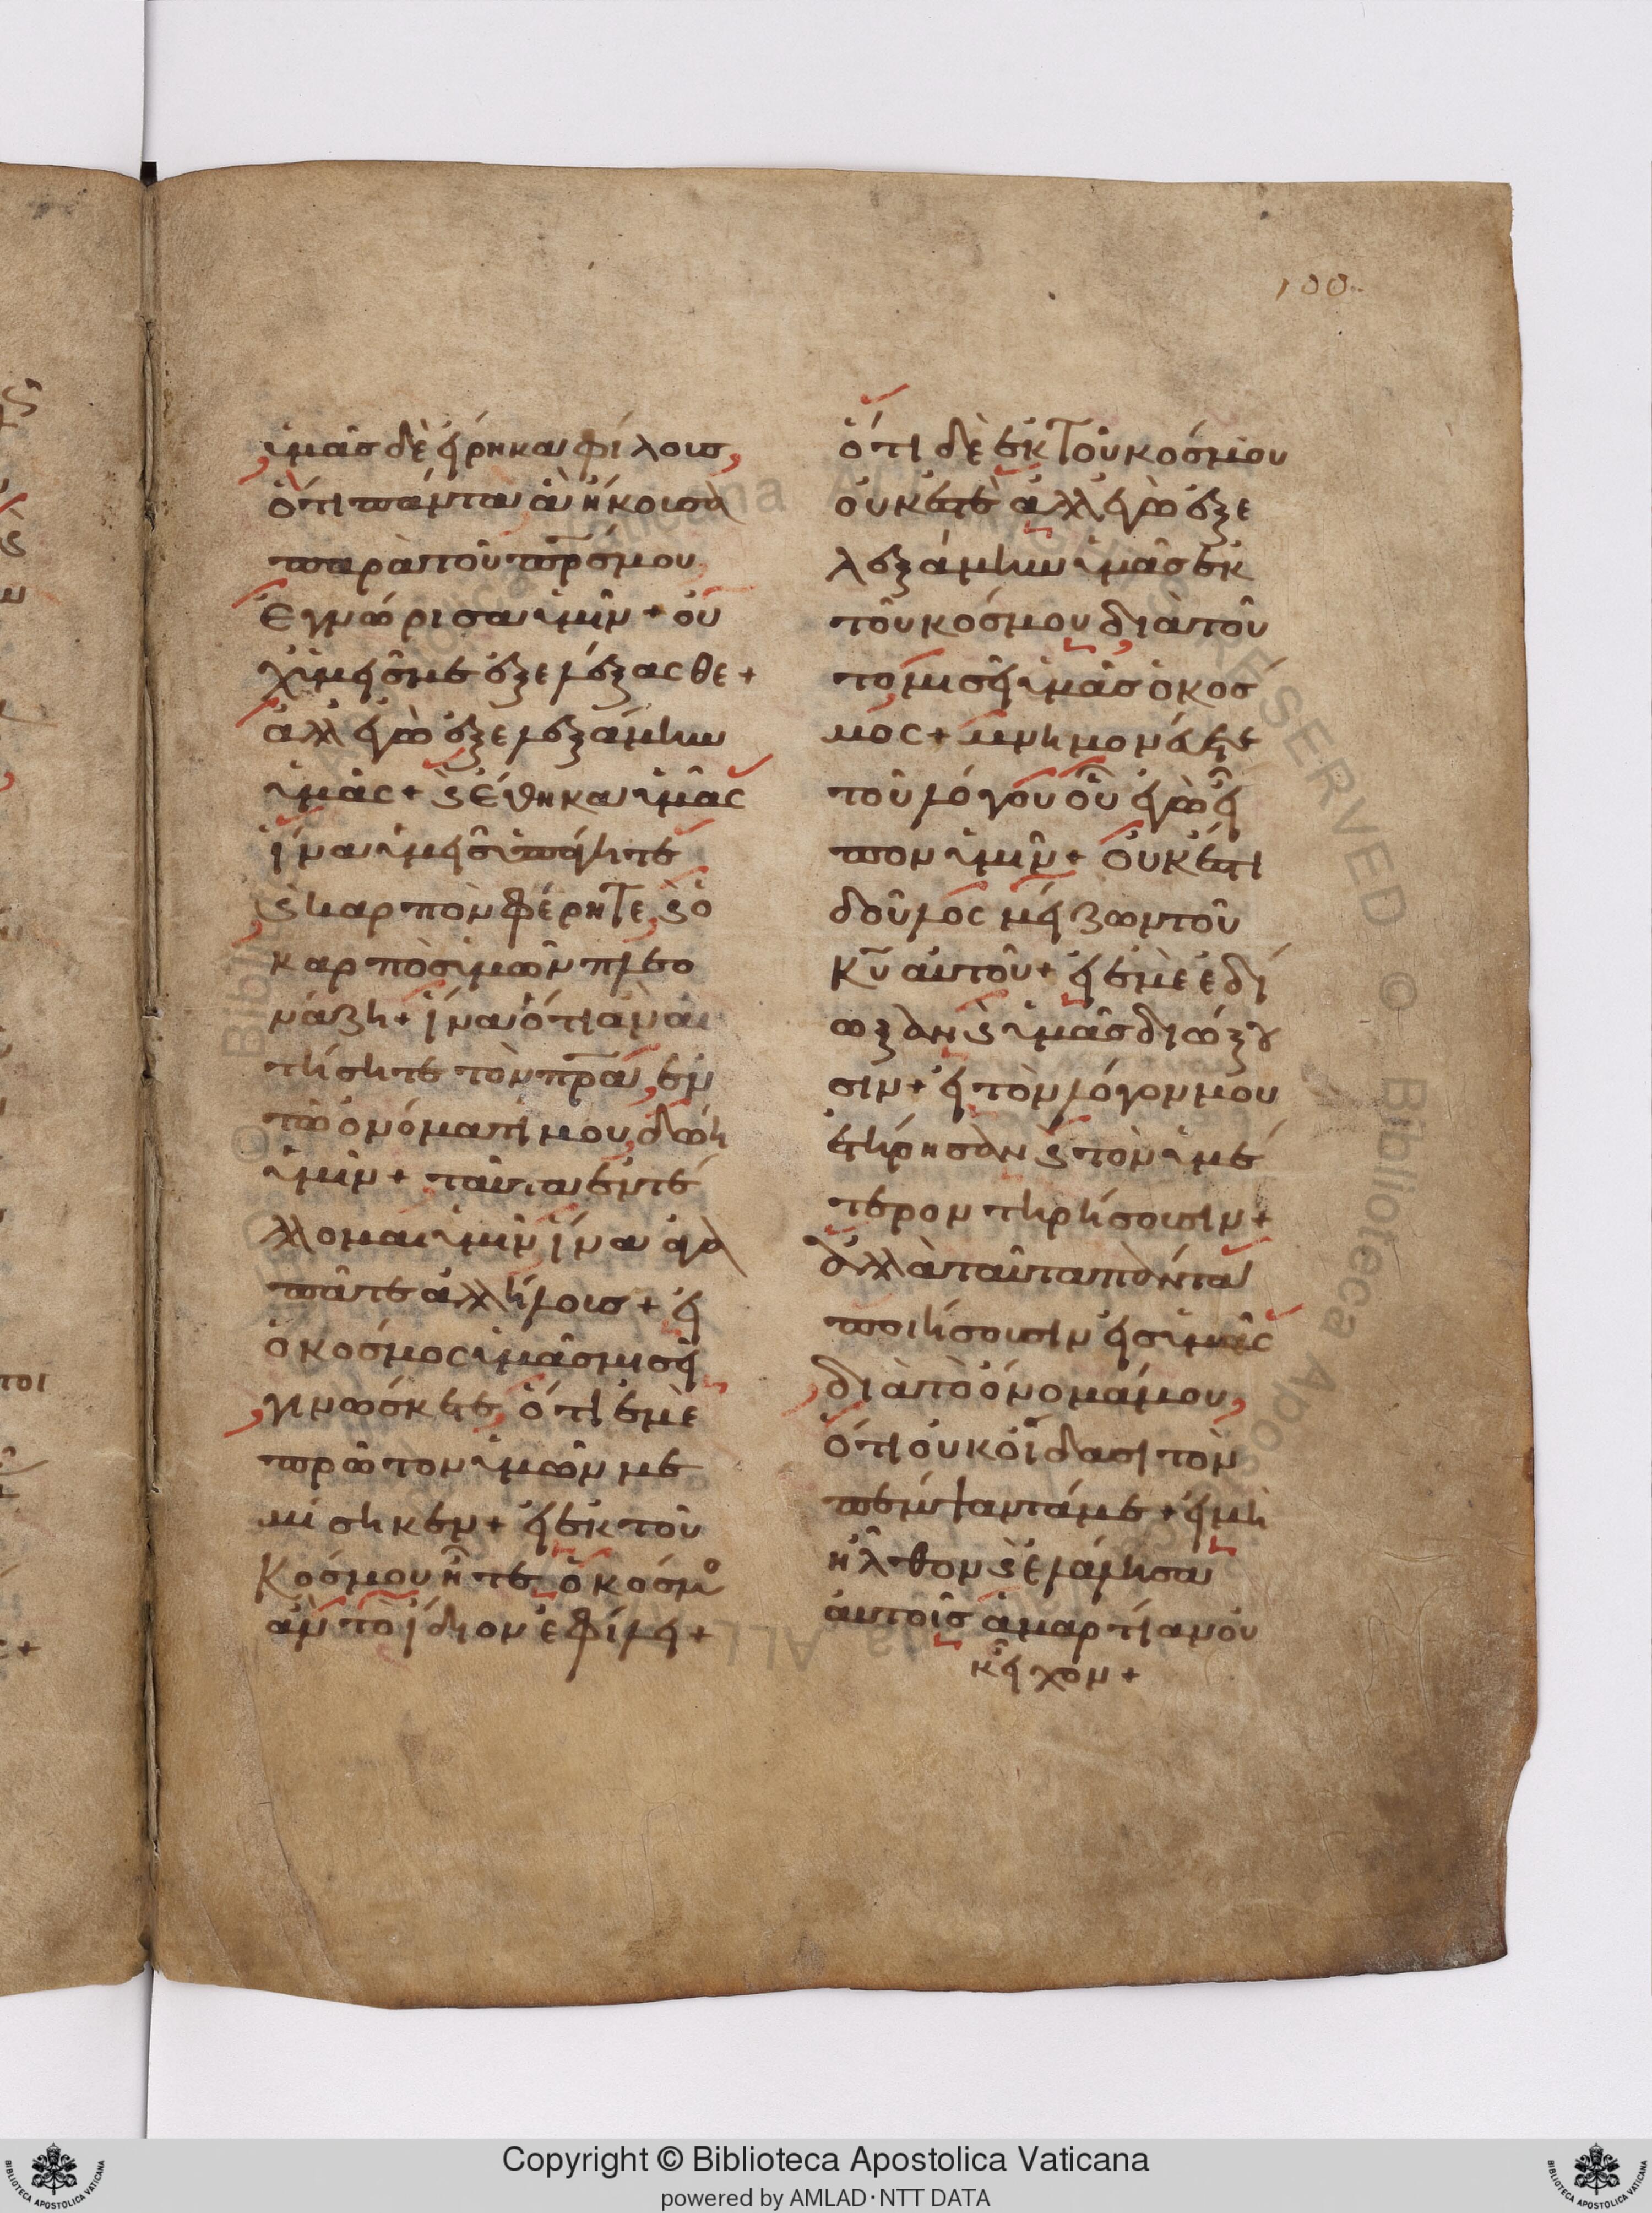 100
ὑμᾶσ δὲ εἴρηκα φίλουσ,
ὅτι πάντα ἃ ἤκουσα
παρὰ τοῦ πρ̅σ μου
ἐγνώρισα ὑμῖν + οὐ
χ ὑμεῖσ με ἐξελέξασθε +
ἀλλ ἐγὼ ἐξελεξάμην
ὑμᾶς + ϗ ἔθηκα ὑμᾶς
ἵνα ὑμεῖσ ὑπάγητε
ϗ καρπὸν φέρητε, ϗ ὁ
καρπὸσ ὑμῶν πλεο
νάζη + ἵνα ὅτι ἂν αἰ
τήσητε τὸν πρ̅α, ἐν
τῶ ὀνόματί μου, δώη
ὑμῖν + ταῦτα ἐντέ
λλομαι ὑμῖν ἵνα ἀγα
πᾶτε ἀλλήλουσ + εἰ
ὁ κόσμος ὑμᾶσ μισεῖ
γινώσκετε, ὅτι ἐμὲ
πρῶτον ὑμῶν με
μίσηκεν + εἰ ἐκ τοῦ
κόσμου ἦτε, ὁ κόσμο
ἂν τὸ ἴδιον ἐφίλει +
ὅτι δὲ ἐκ τοῦ κόσμου
οὐκ ἐστὲ ἀλλ ἐγὼ ἐξε
λεξάμην ὑμᾶσ ἐκ
τοῦ κόσμου διὰ τοῦ
το μισεῖ ὑμᾶσ ὁ κόσ
μος + μνημονεύετε
τοῦ λόγου οὗ ἐγὼ εἶ
πον ὑμῖν + οὐκ ἔστι
δοῦλος μείζων τοῦ
κ̅υ αὐτοῦ + εἰ ἐμὲ ἐδί
ωξαν ϗ ὑμᾶσ διώξου
σιν + εἰ τὸν λόγον μου
ἐτήρησαν ϗ τὸν ὑμέ
τερον τηρήσουσιν +
ἀλλὰ ταῦτα πάντα
ποιήσουσιν εἰσ ὑμᾶς
διὰ τὸ ὄνομά μου,
ὅτι οὐκ οἴδασι τὸν
πέμψαντά με + εἰ μὴ
ἦλθον ϗ ἐλάλησα
αὐτοῖσ ἁμαρτίαν οὐ
κ εἶχον +
Copyright © Biblioteca Apostolica Vaticana
powered by AMLAD･NTT DATA